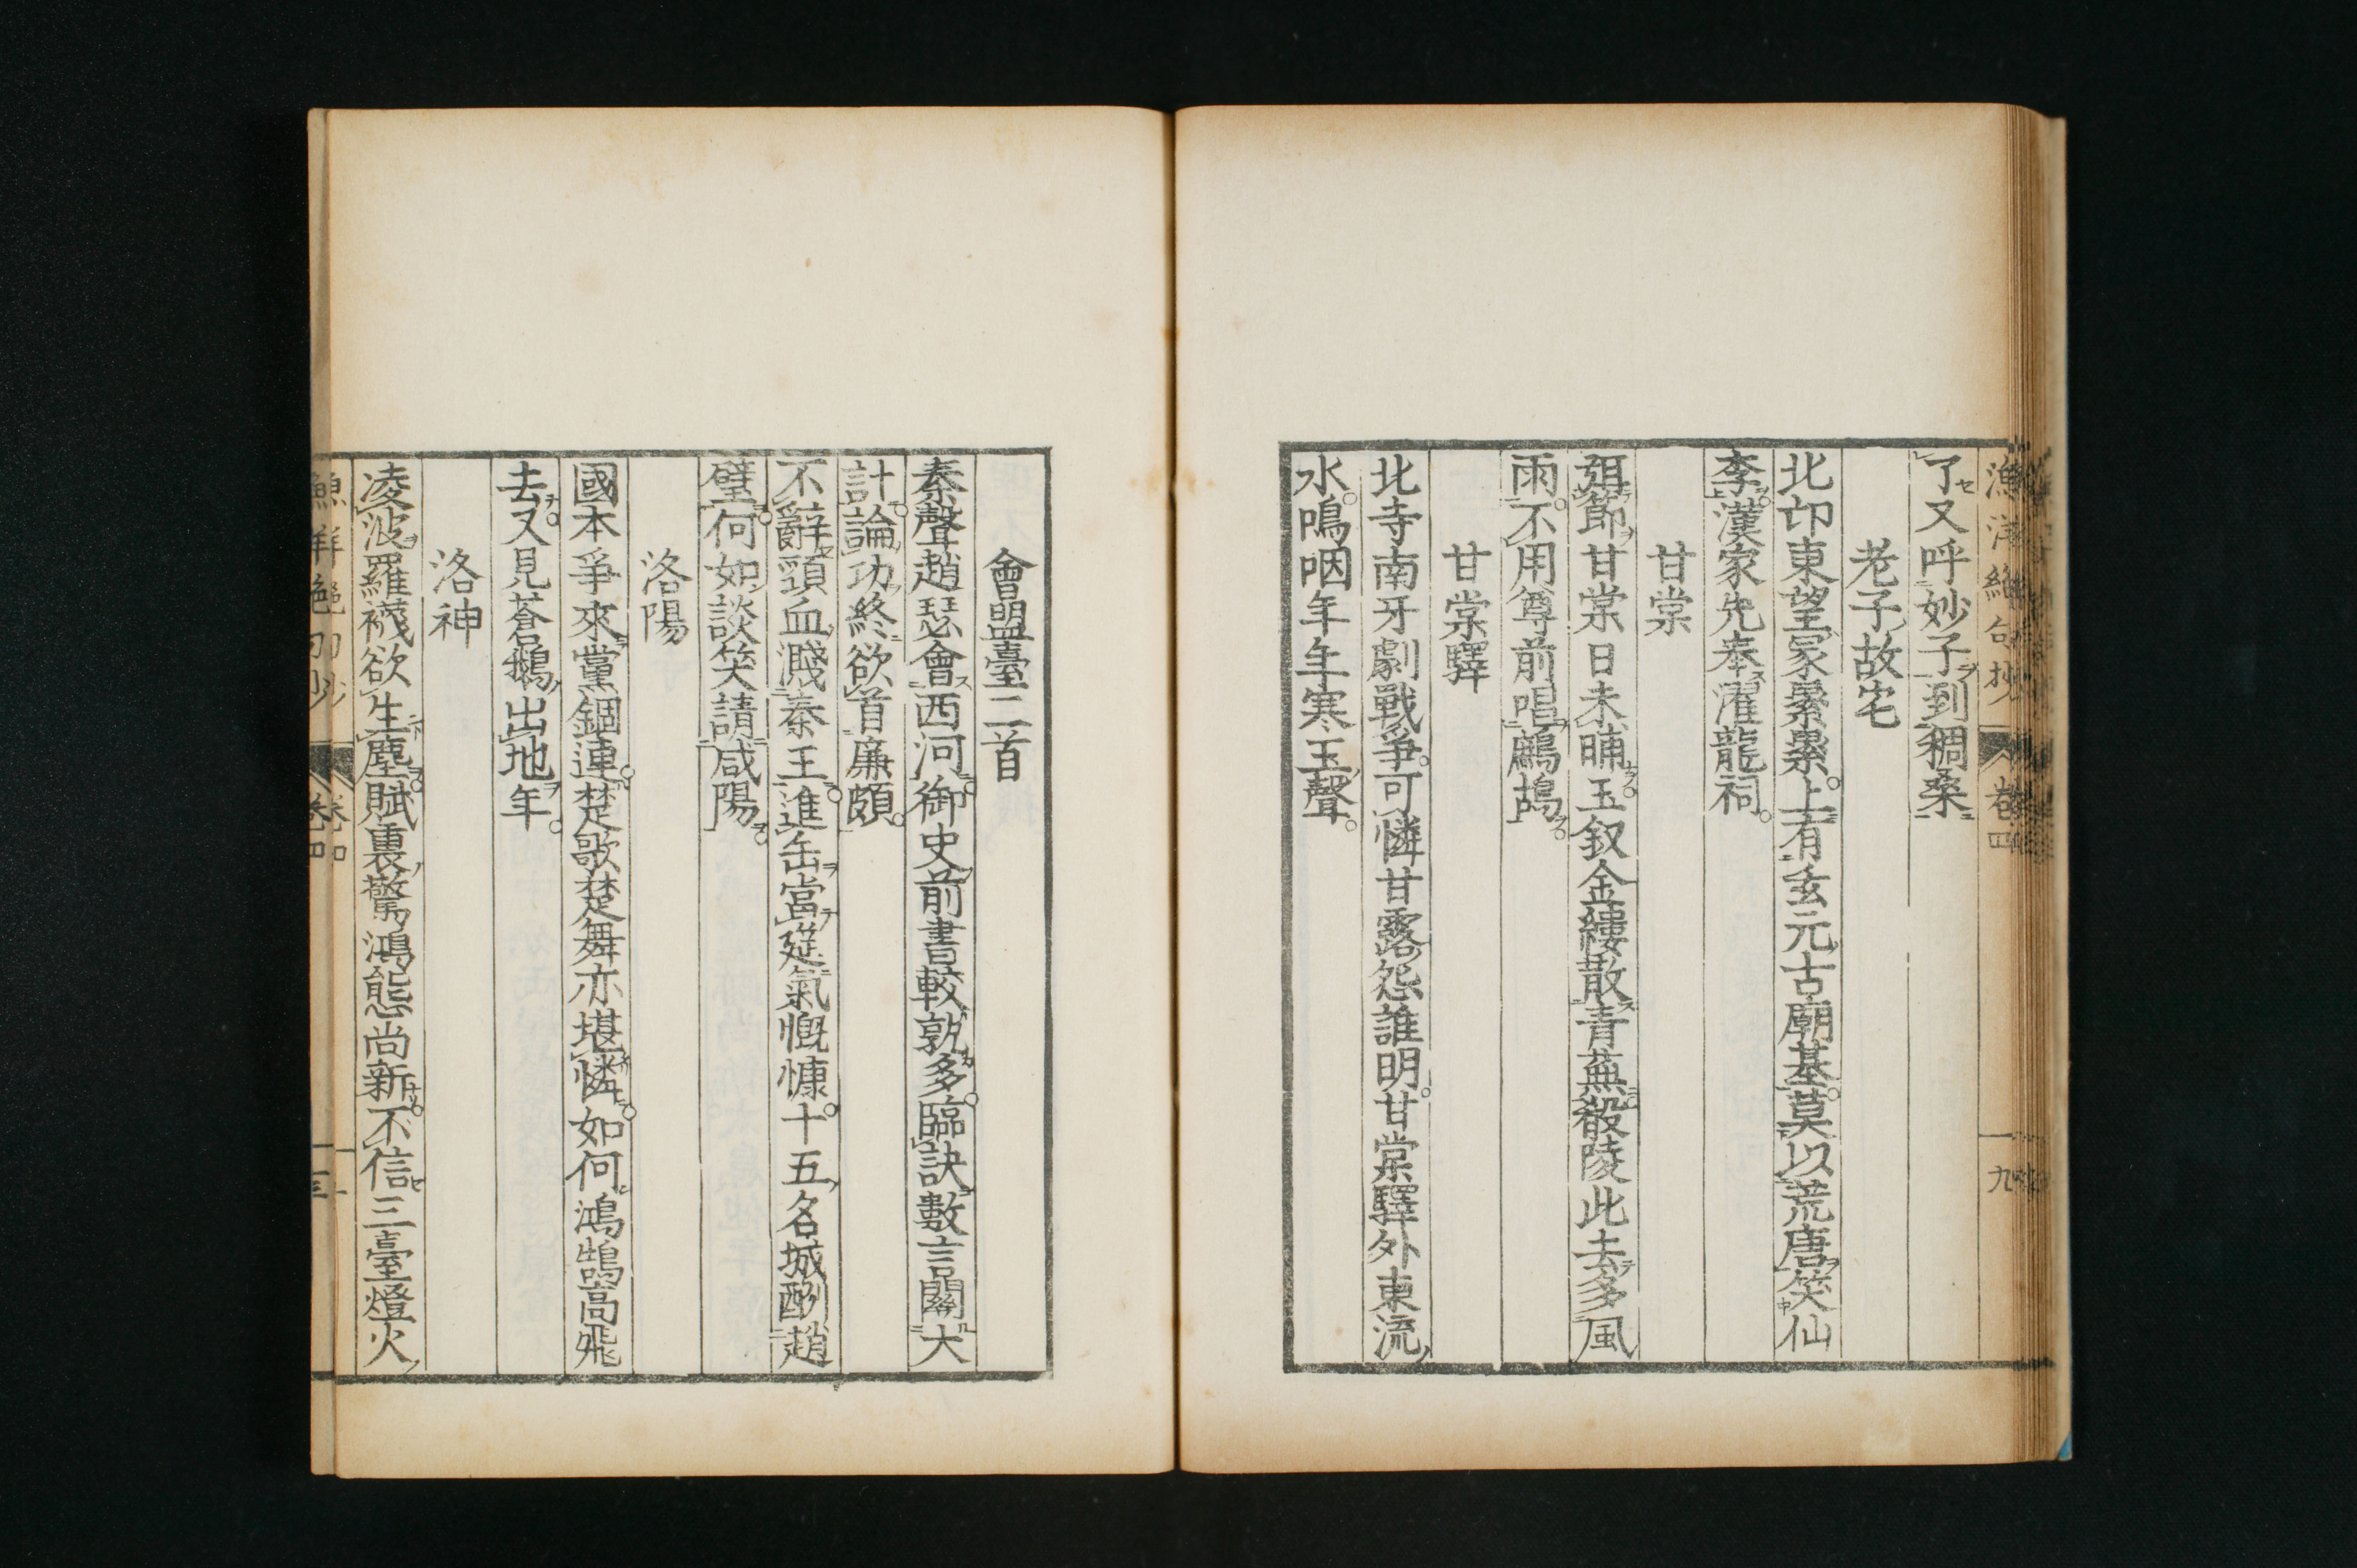 漁洋絶句抄 卷四 九
了又呼妙子到稠桑
老子故宅
北邙東望冢纍纍上有玄元古廟基莫以荒唐笑仙
李漢家先奉濯龍祠
甘棠
弭節甘棠日未晡玉釵金縷散青蕪殽陵此去多風
雨不用尊前唱鷓鴣
甘棠驛
北寺南牙劇戰爭可憐甘露怨誰明甘棠驛外東流
水鳴咽年年寒玉聲
會盟臺二首
秦聲趙瑟會西河御史前書較孰多臨訣數言關大
計論功終欲首廉頗
不辭頸血濺秦王進缶當筵氣慨慷十五名城酬趙
璧何如談笑請咸陽
洛陽
國本爭來黨錮連楚歌楚舞亦堪憐如何鴻鵠高飛
去又見蒼鵝出地年
洛神
凌波羅襪欲生塵賦裏驚鴻態尚新不信三臺燈火